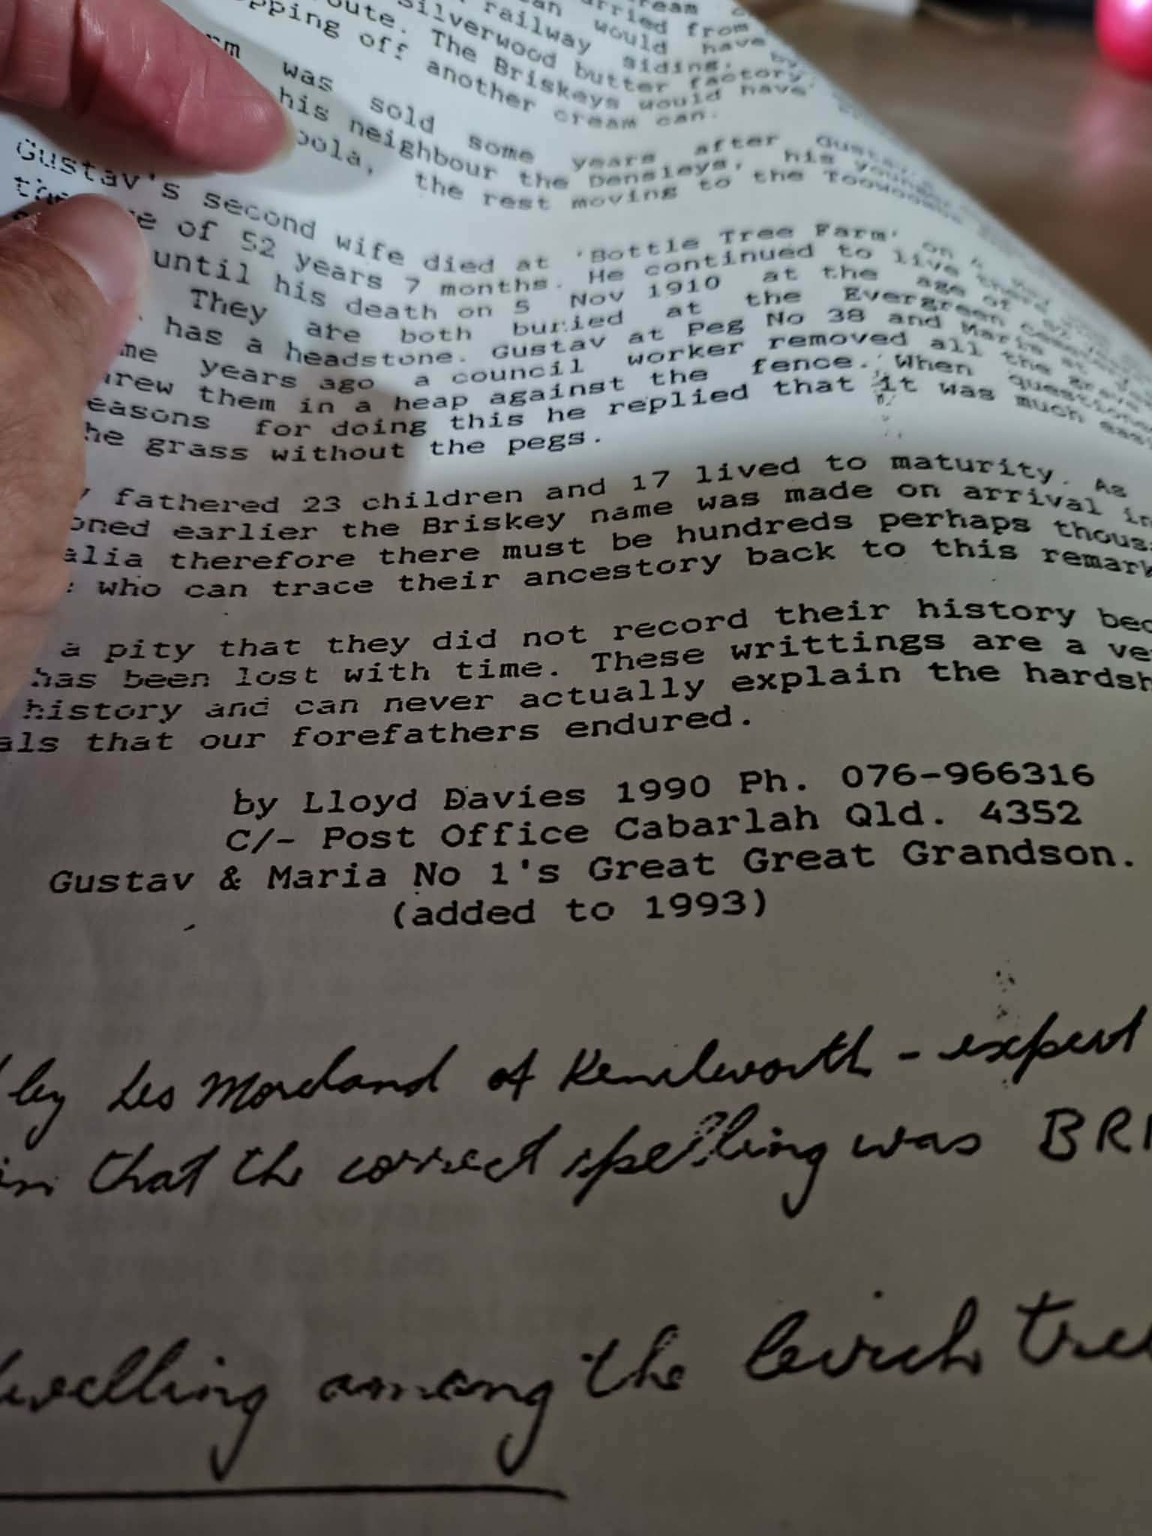 ream
an would
arried from
railway siding.
have by
oute. The Briskeys would have
Silverwood butter factory
pping off another cream can.
rm was sold some years after Gustav
his neighbour the Densleys, his young
oola, the rest moving to the Toowoomba
Gustav's second wife died at 'Bottle Tree Farm' on
the of 52 years 7 months. He continued to live there
until his death on 5 Nov 1910 at the age of
They are both buried at the Evergreen
has a headstone. Gustav at Peg No 38 and Maria at
me years ago a council worker removed all the grave
hrew them in a heap against the fence. When questioned
easons for doing this he replied that it was much
he grass without the pegs.
y fathered 23 children and 17 lived to maturity. As
oned earlier the Briskey name was made on arrival in
alia therefore there must be hundreds perhaps thous
who can trace their ancestory back to this remark
a pity that they did not record their history bec
has been lost with time. These writtings are a ve
history and can never actually explain the hardsh
als that our forefathers endured.
by Lloyd Davies 1990 Ph. 076-966316
C/- Post Office Cabarlah Qld. 4352
Gustav & Maria No 1's Great Great Grandson.
(added to 1993)
by Les Moreland of Kenilworth - expert
that the correct spelling was BRI
dwelling among the birch tree